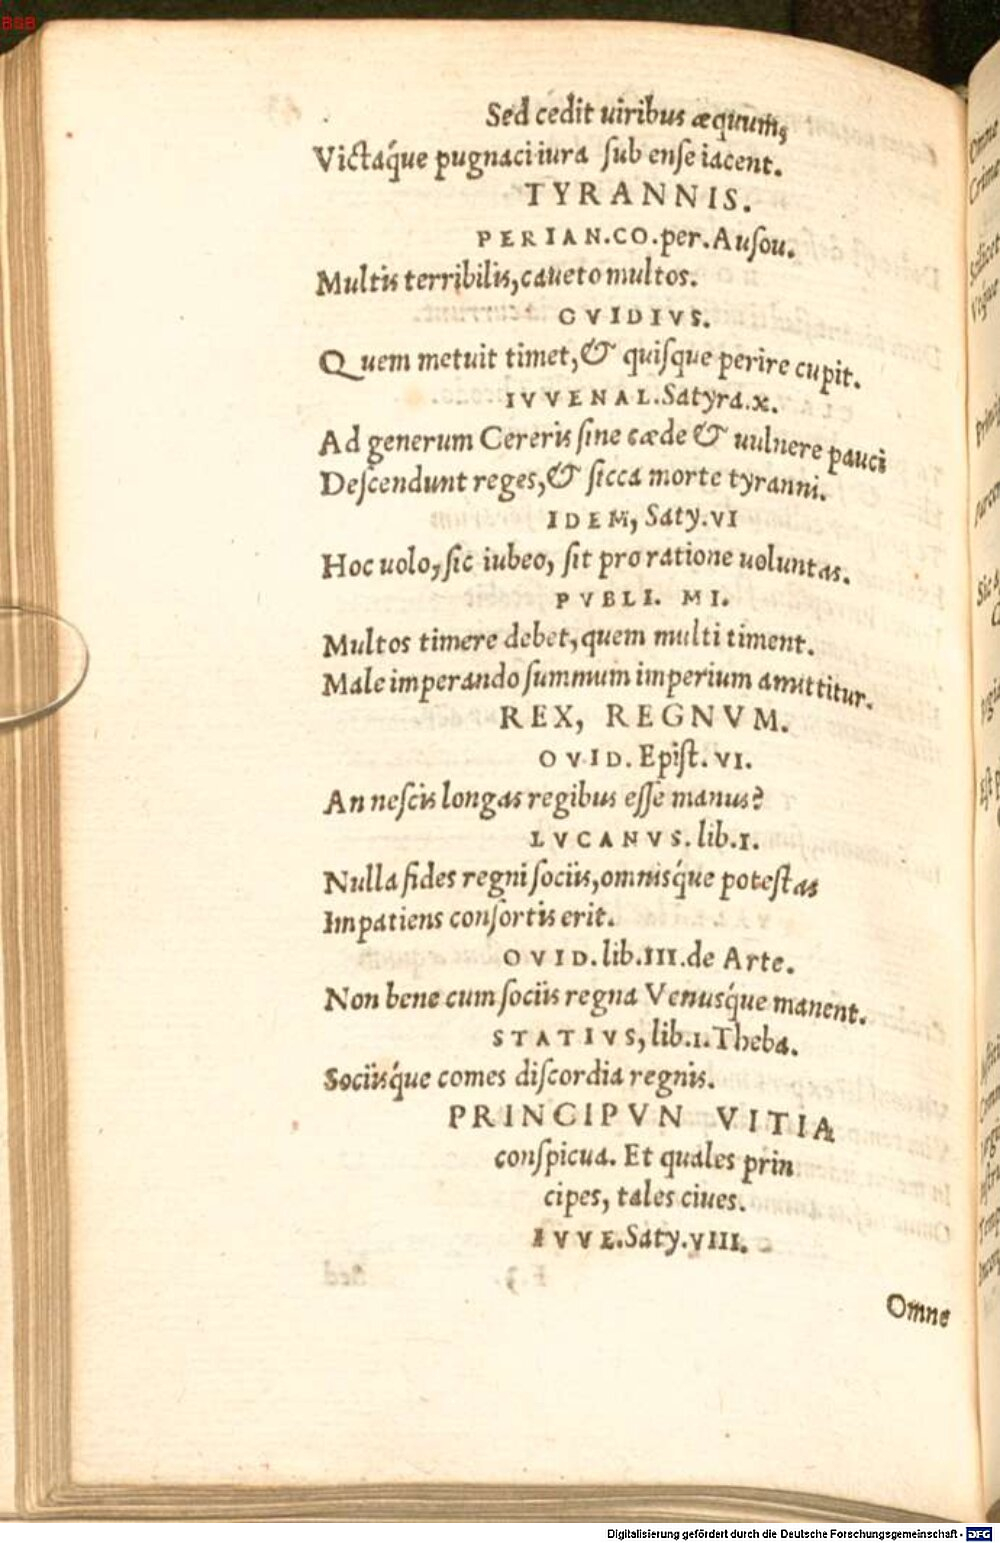 BSB
Sed cedit uiribus æquum,
Victaq́ue pugnaci iura sub ense iacent.
TYRANNIS.
PERIAN.CO.per.Ausou.
Multis terribilis, caueto multos.
OVIDIVS.
Quem metuit timet, & quisque perire cupit.
IVVENAL.Satyra.x.
Ad generum Cereris sine cæde & uulnere pauci
Descendunt reges, & sicca morte tyranni.
IDEM, Saty.VI
Hoc uolo, sic iubeo, sit pro ratione uoluntas.
PVBLI. MI.
Multos timere debet, quem multi timent.
Male imperando summum imperium amittitur.
REX, REGNVM.
OVID. Epist. VI.
An nescis longas regibus esse manus?
LVCANVS. lib.I.
Nulla fides regni sociis, omnisq́ue potestas
Impatiens consortis erit.
OVID.lib.III.de Arte.
Non bene cum sociis regna Venusq́ue manent.
STATIVS, lib.I.Theba.
Sociisq́ue comes discordia regnis.
PRINCIPVN VITIA
conspicua. Et quales prin
cipes, tales ciues.
IVVE.Saty.VIII.
Omne
Digitalisierung gefördert durch die Deutsche Forschungsgemeinschaft - DFG